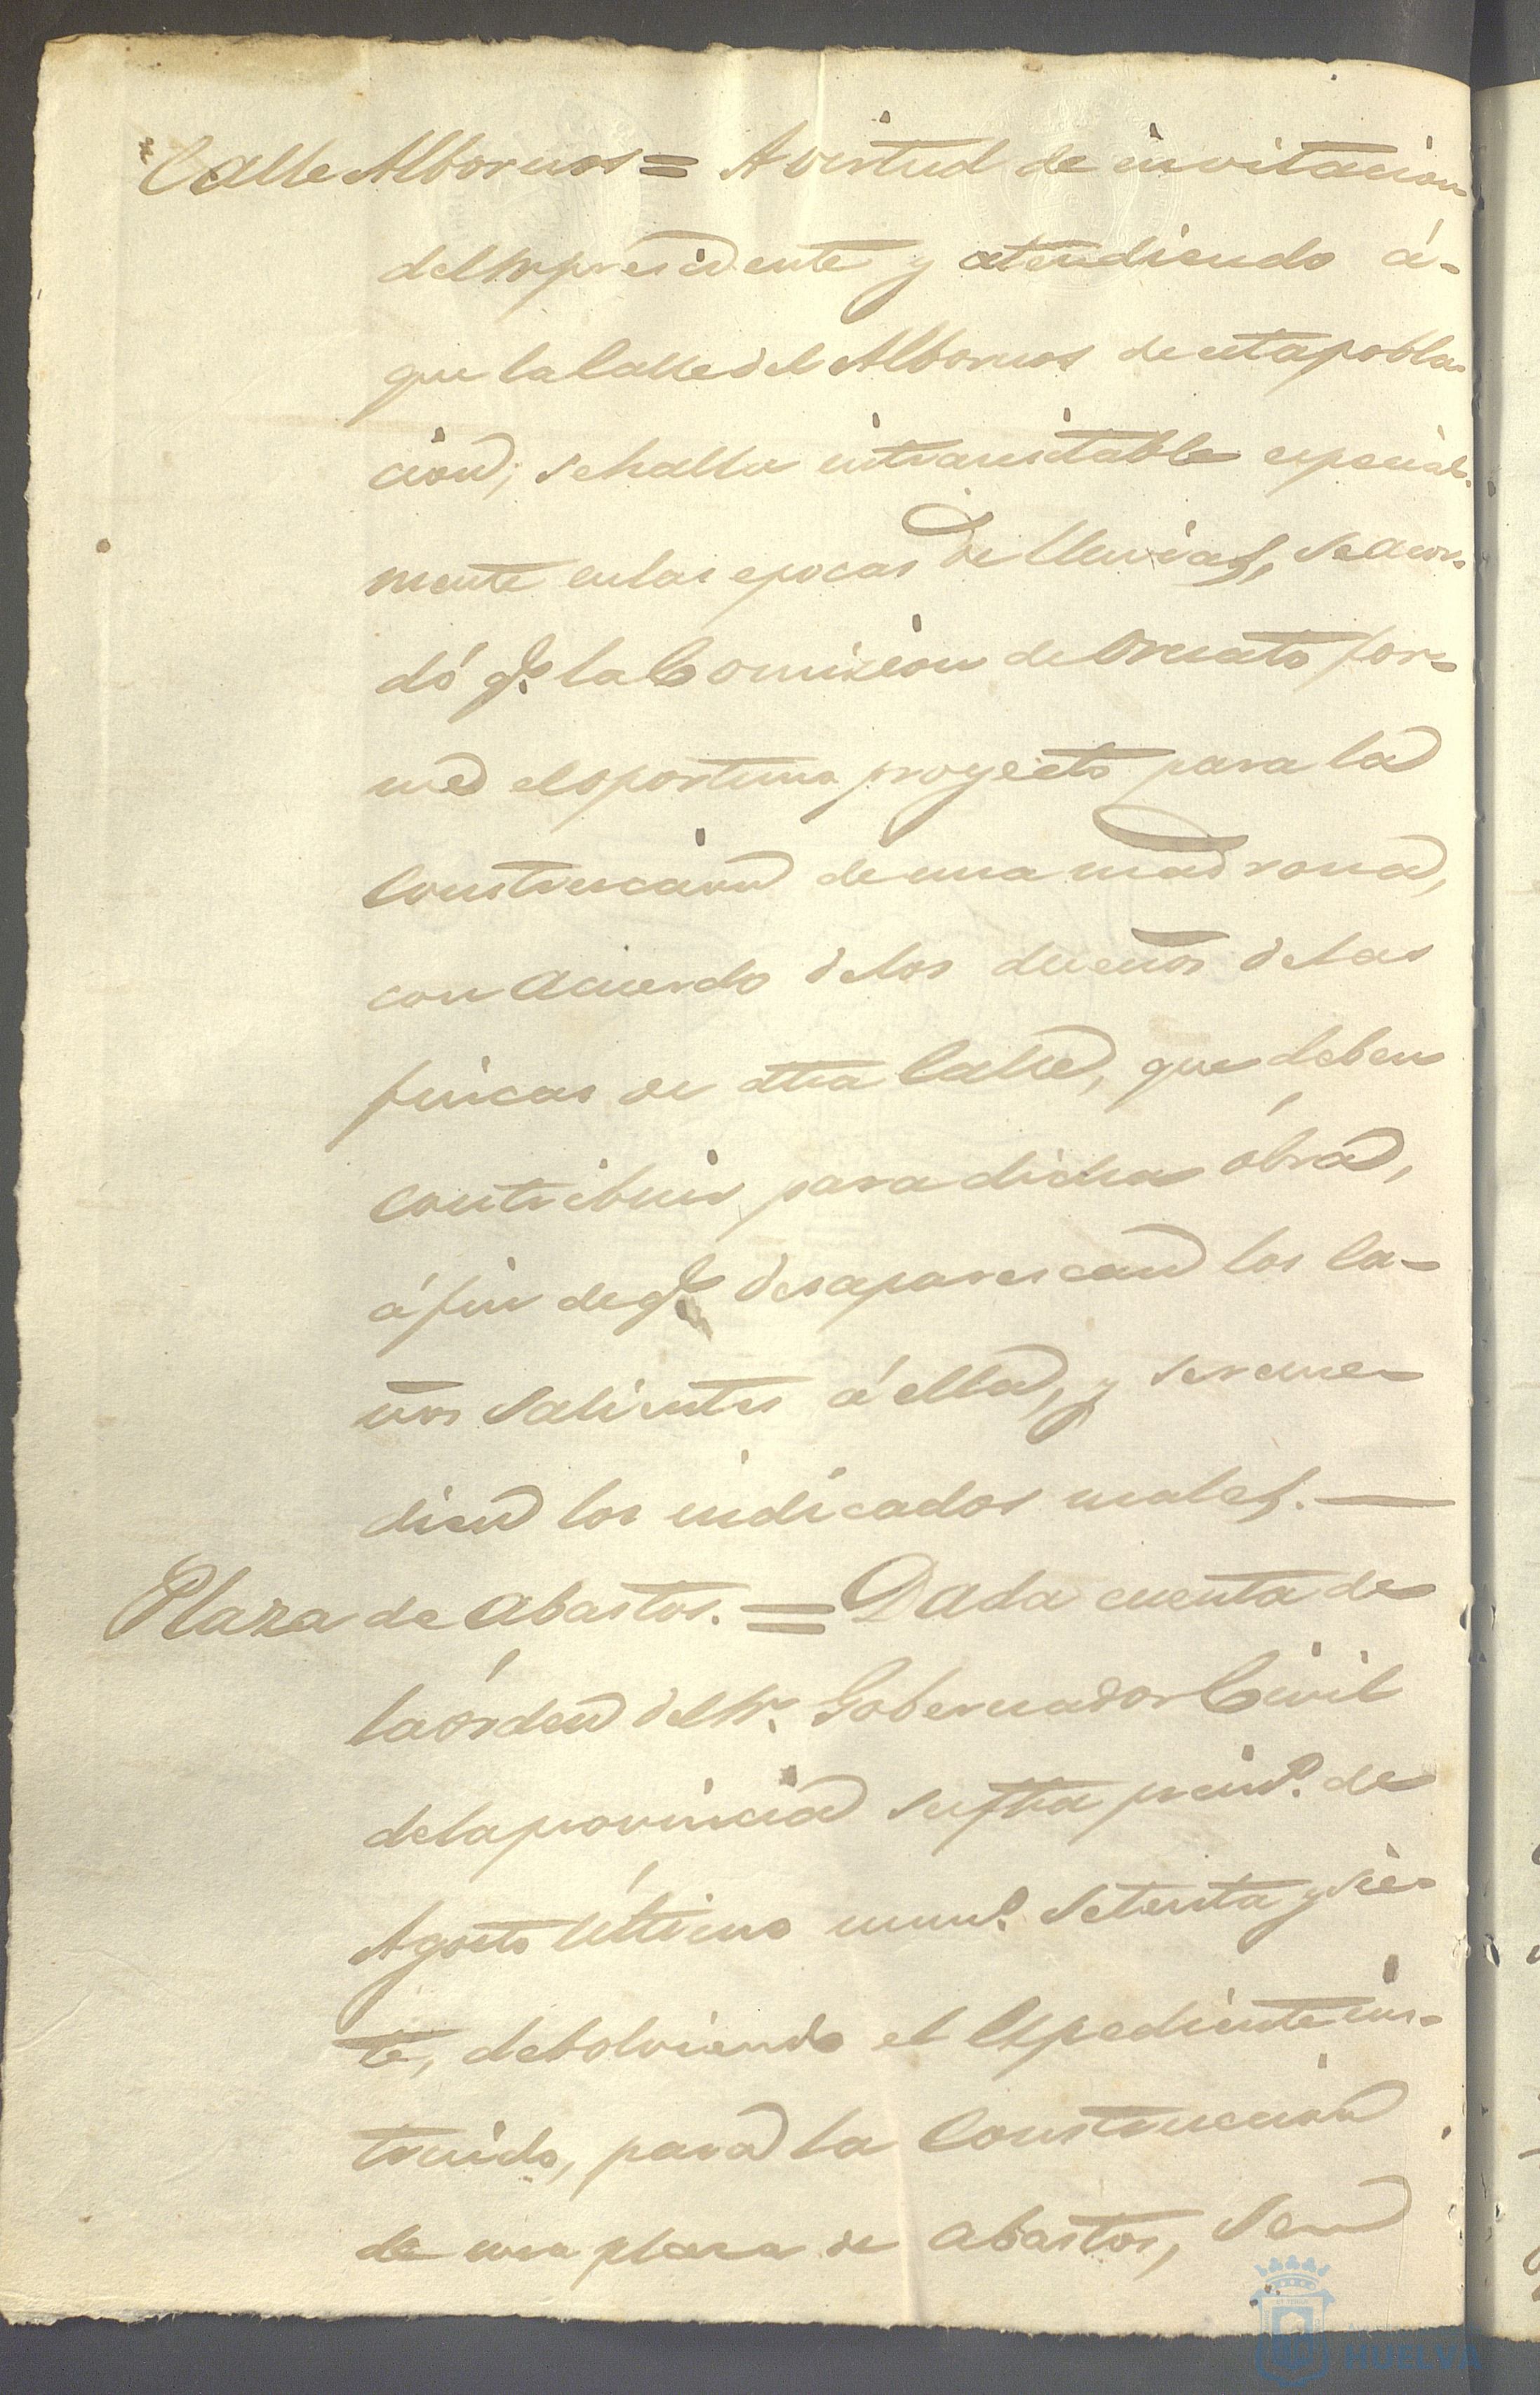 Calle Albornos = A virtud de invitacion
del Sr presidente y atendiendo á-
que la Calle del Albornos de esta pobla-
cion, se halla intransitable especial-
mente en las epocas de lluvias, se acor-
dó qe. la Comision de Ornato for-
me el oportuno proyecto para la
Construccion de una madrona,
con acuerdo de los dueños de las
fincas de dha Calle, que deben
contribuir para dicha óbra,
á fin de qe desaparescan los ca-
ños salientes á ella, y se reme-
dien los indicados males. —
Plaza de abastos. = Dada cuenta de
la órden del Sr. Gobernador Civil
de la provincia su fha prim.º de
Agosto Último num.º Setenta y sie-
te, debolviendo el Espediente ins-
truido, para la Construccion
de una plaza de abastos, se
HUELVA